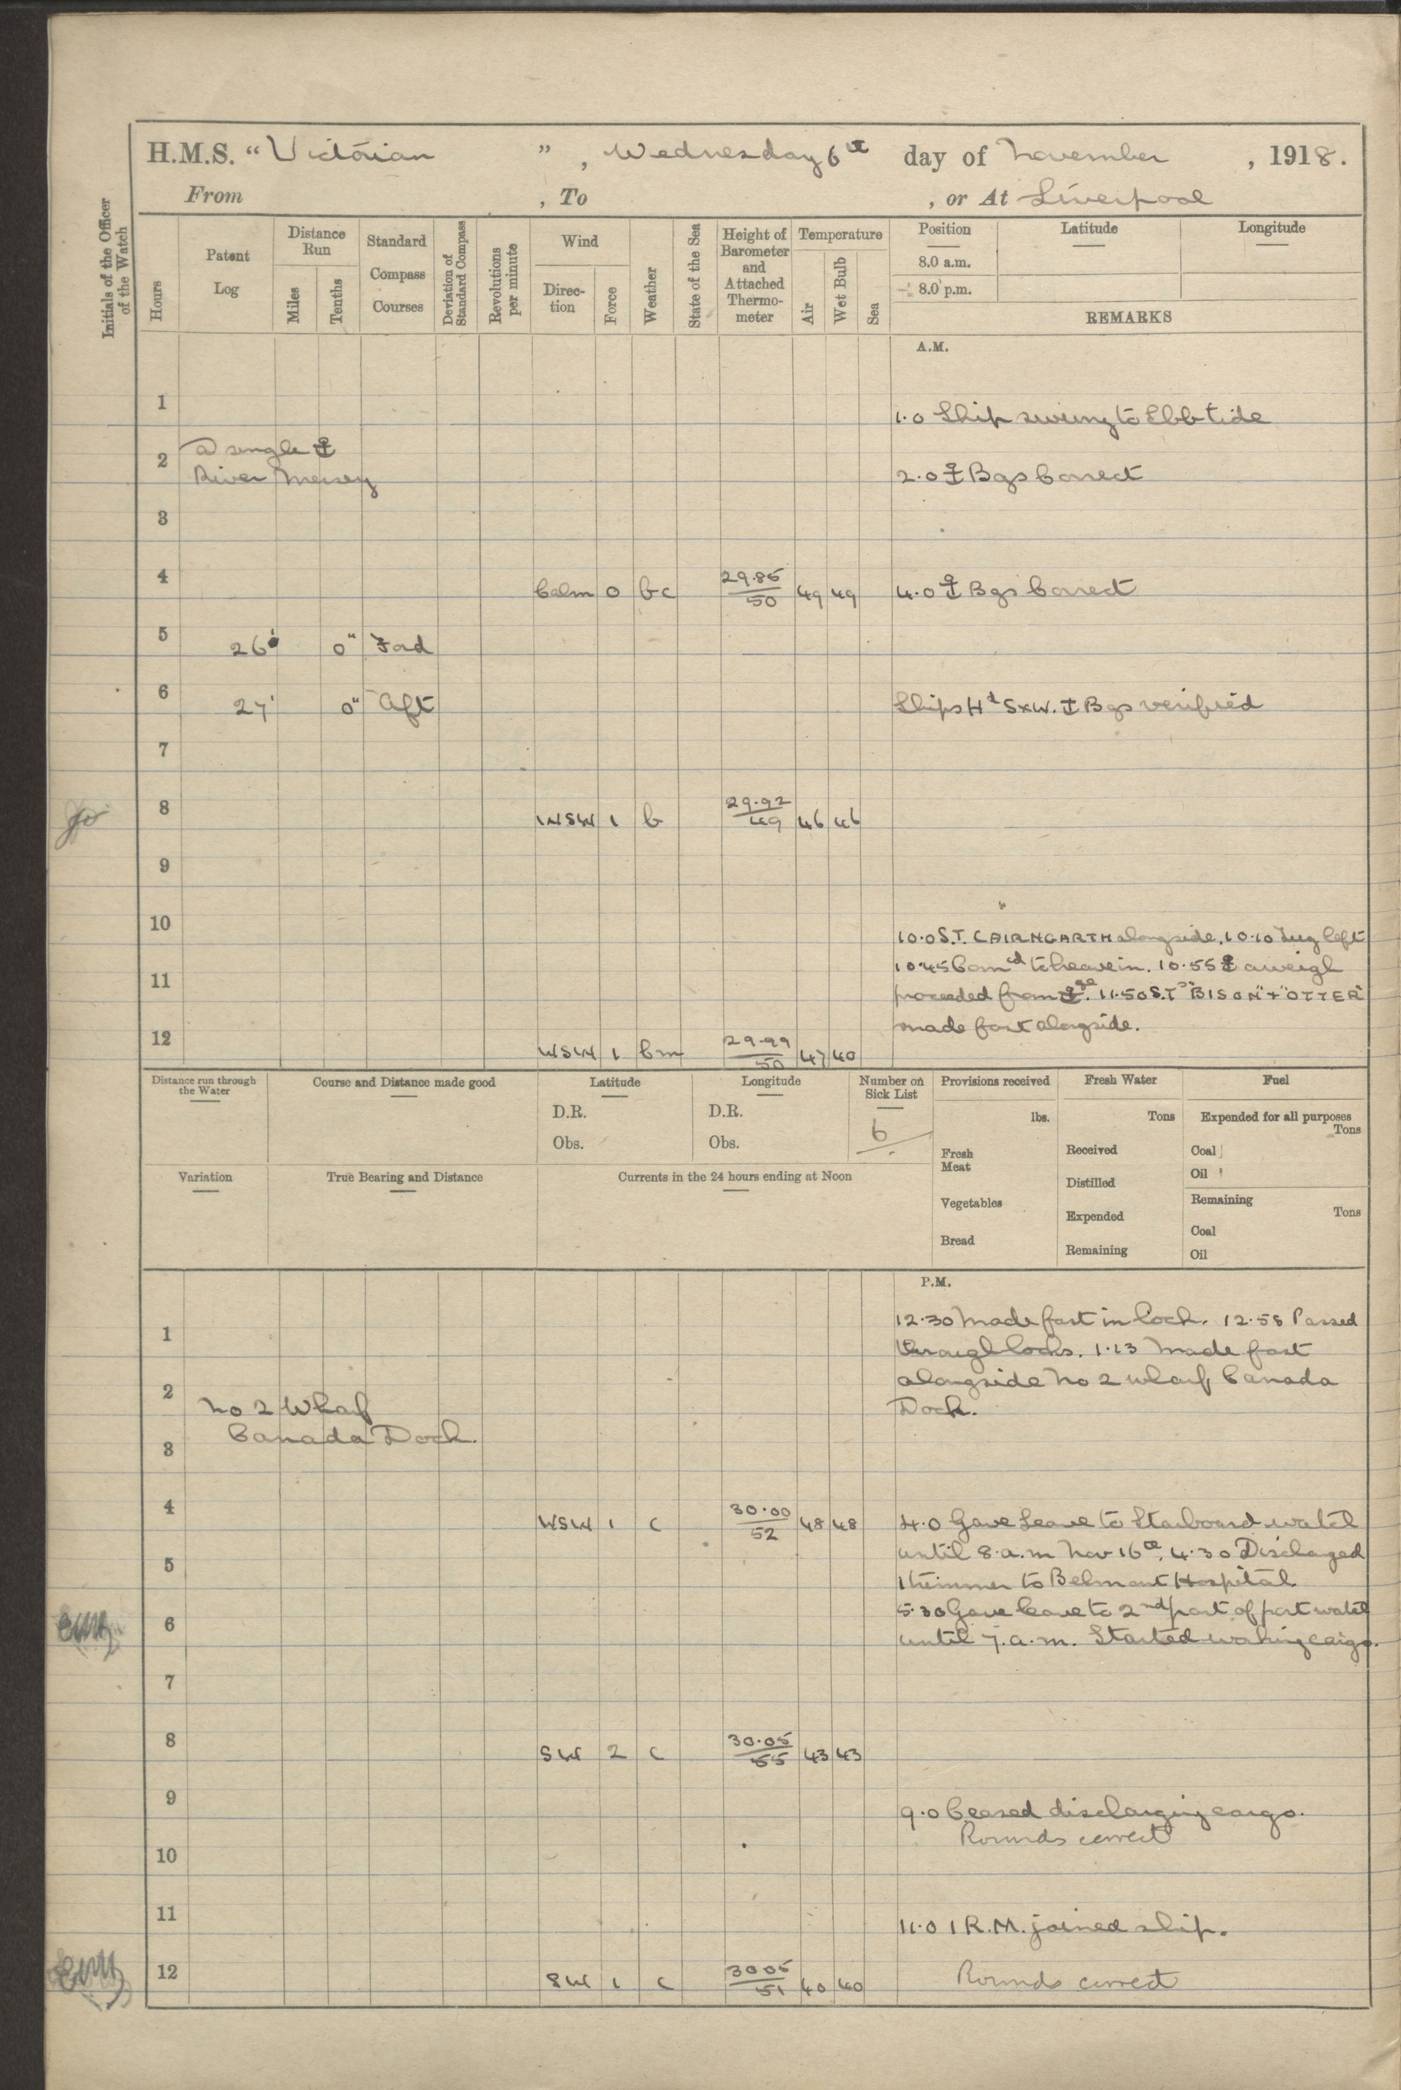 H.M.S. "Victorian ", Wednesday 6th day of November, 1918.
From , To , or At Liverpool
Initials of the Officer of the Watch
Hours
Patent Log
Distance Run
Miles
Tenths
Standard Compass Courses
Deviation of Standard Compass
Revolutions per minute
Wind
Direc-tion
Force
Weather
State of the Sea
Height of Barometer and Attached Thermo-meter
Temperature
Air
Wet Bulb
Sea
Position
8.0 a.m.
8.0 p.m.
Latitude
Longitude
REMARKS
A.M.
1 1.0 Ship swung to Ebb tide
@ single ⚓
2 River Mersey 2.0 ⚓ Bgs Correct
3
4 Calm 0 bc 29.85/50 49 49 4.0 ⚓ Bgs Correct
5 26' 0" Ford
6 27' 0" Aft Ships Hd SxW. ⚓ Bgs verified
7
8 WSW 1 b 29.92/49 46 46
9
10 10.0 S.T. CAIRNGARTH alongside, 10.10 Tug left
10.45 Comcd to heave in. 10.55 ⚓ aweigh
11 proceeded from ⚓ge. 11.50 S.T "BISON" + "OTTER"
made fast alongside.
12 WSW 1 bm 29.99/50 47 40
Distance run through the Water
Course and Distance made good
Latitude
D.R.
Obs.
Longitude
D.R.
Obs.
Number on Sick List
6
Provisions received
lbs.
Fresh Meat
Vegetables
Bread
Fresh Water
Tons
Received
Distilled
Expended
Remaining
Fuel
Expended for all purposes
Tons
Coal
Oil
Remaining
Tons
Coal
Oil
Variation
True Bearing and Distance
Currents in the 24 hours ending at Noon
P.M.
12.30 Made fast in lock. 12.58 Passed
1 through locks. 1.13 Made fast
2 alongside No 2 wharf Canada
No 2 Wharf Dock.
3 Canada Dock.
4 WSW 1 c 30.00/52 48 48 4.0 Gave Leave to Starboard watch
until 8.a.m Nov 16th. 4.30 Discharged
5 1 trimmer to Belmont Hospital
5.30 Gave leave to 2nd part of port watch
6 until 7.a.m. Started working cargo.
7
8 SW 2 c 30.05/55 43 43
9 9.0 Ceased discharging cargo.
Rounds correct
10
11 11.0 1 R.M. joined ship.
12 SW 1 c 30 05/51 40 40 Rounds correct